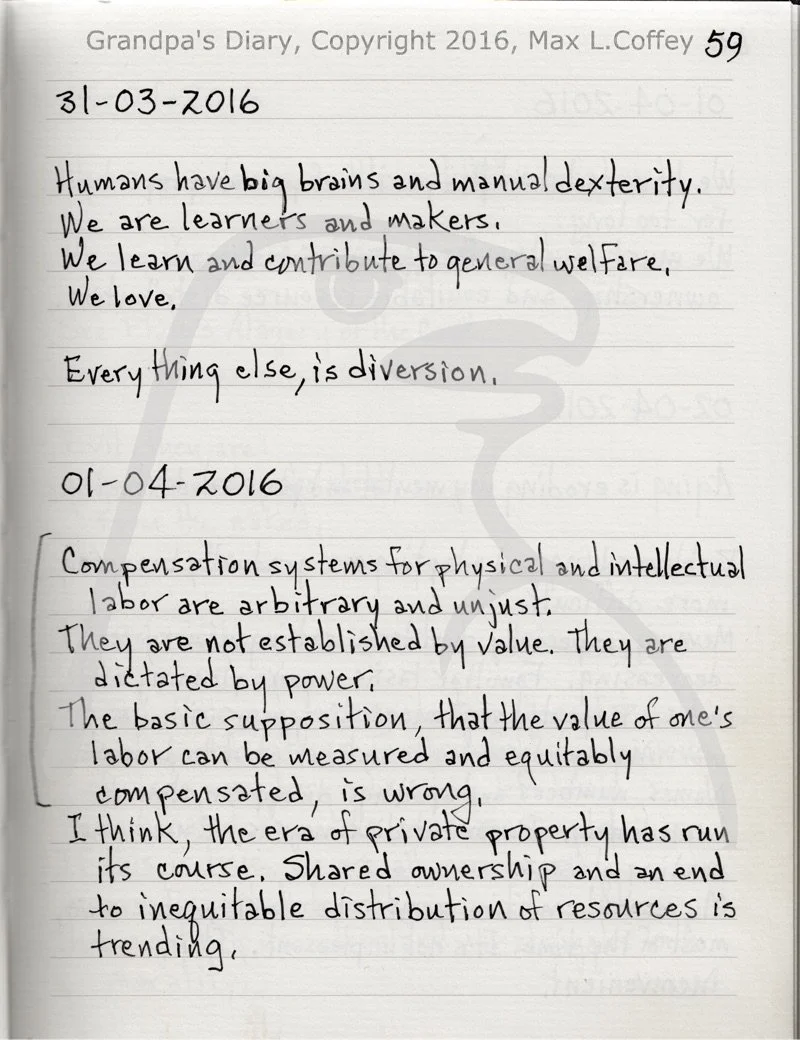 Grandpa's Diary, Copyright 2016, Max L.Coffey 59
31-03-2016
Humans have big brains and manual dexterity.
We are learners and makers.
We learn and contribute to general welfare.
We love.
Everything else, is diversion.
01-04-2016
Compensation systems for physical and intellectual
labor are arbitrary and unjust.
They are not established by value. They are
dictated by power.
The basic supposition, that the value of one's
labor can be measured and equitably
compensated, is wrong.
I think, the era of private property has run
its course. Shared ownership and an end
to inequitable distribution of resources is
trending.